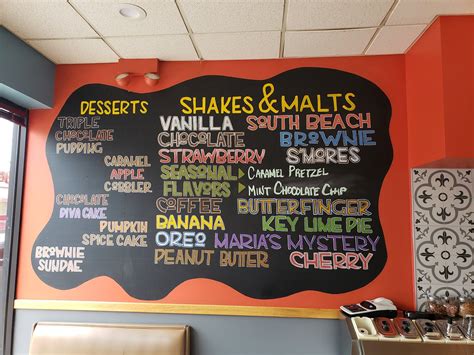 DESSERTS
TRIPLE
CHOCOLATE
PUDDING
CARAMEL
APPLE
COBBLER
CHOCOLATE
DIVA CAKE
PUMPKIN
SPICE CAKE
BROWNIE
SUNDAE
SHAKES & MALTS
VANILLA SOUTH BEACH
CHOCOLATE BROWNIE
STRAWBERRY S'MORES
SEASONAL CARAMEL PRETZEL
FLAVORS MINT CHOCOLATE CHIP
COFFEE BUTTERFINGER
BANANA KEY LIME PIE
OREO MARIA'S MYSTERY
PEANUT BUTTER CHERRY